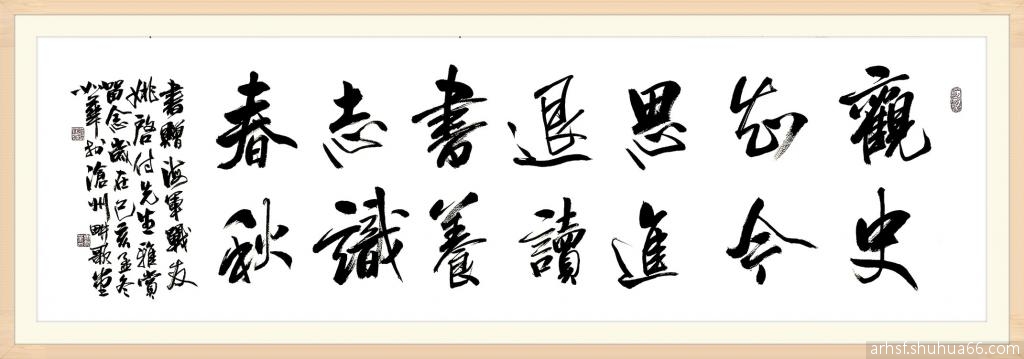 觀史
知今
思進
退讀
書養
志識
春秋
書贈海軍戰友
姚啓付先生雅賞
留念歲在己亥孟冬
小華於滄州畔歌堂
arhsf.shuhua66.com